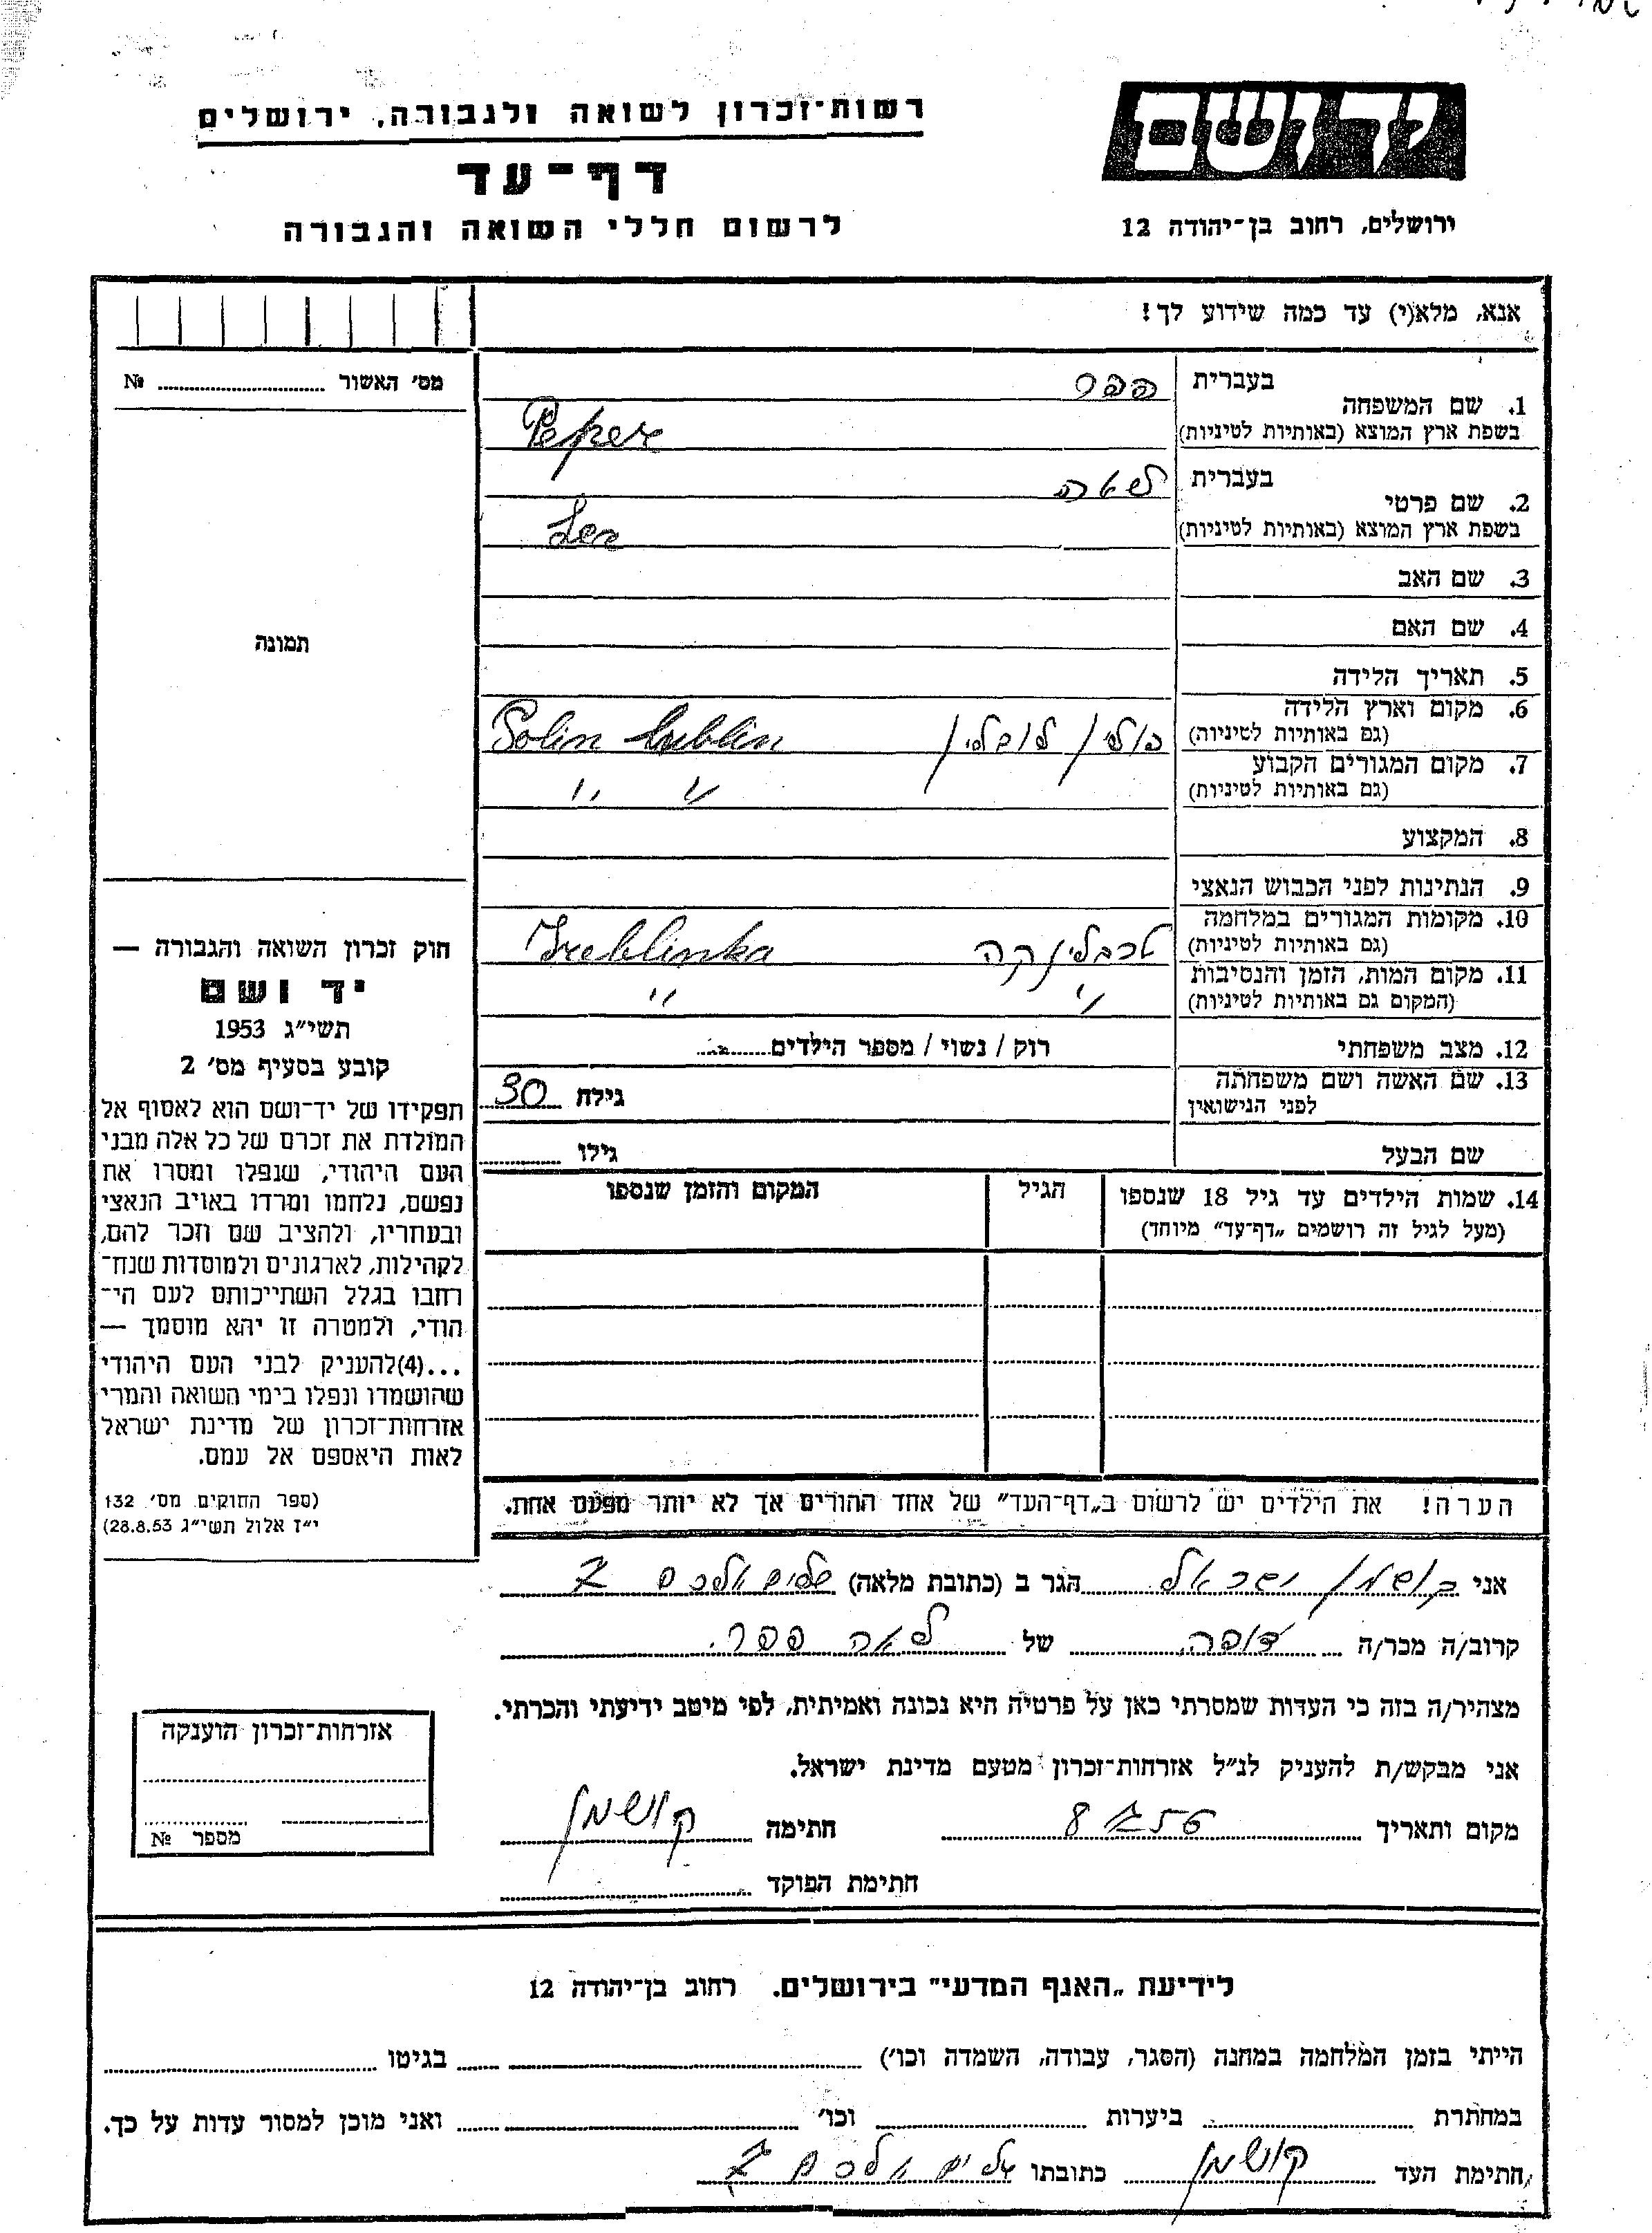 רשות־זכרון לשואה ולגבורה, ירושלים
דף־עד
לרשום חללי השואה והגבורה
יד ושם
ירושלים, רחוב בן־יהודה 12
אנא, מלא(י) עד כמה שידוע לך!
מס' האשור № ........
תמונה
1. שם המשפחה
בעברית פפר
בשפת ארץ המוצא (באותיות לטיניות) Peper
2. שם פרטי
בעברית
בשפת ארץ המוצא (באותיות לטיניות)
3. שם האב
4. שם האם
5. תאריך הלידה
6. מקום וארץ הלידה
(גם באותיות לטיניות) פולין לובלין Polin Lublin
7. מקום המגורים הקבוע
(גם באותיות לטיניות) " "
8. המקצוע
9. הנתינות לפני הכבוש הנאצי
10. מקומות המגורים במלחמה
(גם באותיות לטיניות) טרבלינקה Treblinka
11. מקום המות, הזמן והנסיבות
(המקום גם באותיות לטיניות) " "
12. מצב משפחתי רוק / נשוי / מספר הילדים........
13. שם האשה ושם משפחתה
לפני הנישואין גילה 30
שם הבעל גילו ........
14. שמות הילדים עד גיל 18 שנספו הגיל המקום והזמן שנספו
(מעל לגיל זה רושמים „דף־עד" מיוחד)
חוק זכרון השואה והגבורה —
יד ושם
תשי״ג 1953
קובע בסעיף מס' 2
תפקידו של יד־ושם הוא לאסוף אל
המולדת את זכרם של כל אלה מבני
העם היהודי, שנפלו ומסרו את
נפשם, נלחמו ומרדו באויב הנאצי
ובעוזריו, ולהציב שם וזכר להם,
לקהילות, לארגונים ולמוסדות שנח־
רבו בגלל השתייכותם לעם הי־
הודי, ולמטרה זו יהא מוסמך —
...(4)להעניק לבני העם היהודי
שהושמדו ונפלו בימי השואה והמרי
אזרחות־זכרון של מדינת ישראל
לאות היאספם אל עמם.
(ספר החוקים מס' 132
י״ז אלול תשי״ג 28.8.53)
הערה! את הילדים יש לרשום ב„דף־העד" של אחד ההורים אך לא יותר מפעם אחת.
אני קושמן ישראל הגר ב (כתובת מלאה) שלום עליכם 7
קרוב/ה מכר/ה של לאה פפר.
מצהיר/ה בזה כי העדות שמסרתי כאן על פרטיה היא נכונה ואמיתית, לפי מיטב ידיעתי והכרתי.
אני מבקש/ת להעניק לנ״ל אזרחות־זכרון מטעם מדינת ישראל.
מקום ותאריך חתימה קושמן
חתימת הפוקד
אזרחות־זכרון הוענקה
מספר №
לידיעת „האגף המדעי" בירושלים. רחוב בן־יהודה 12
הייתי בזמן המלחמה במחנה (הסגר, עבודה, השמדה וכו') ........ בגיטו ........
במחתרת ........ ביערות ........ וכו' ........ ואני מוכן למסור עדות על כך.
חתימת העד קושמן כתובתו שלום עליכם 7